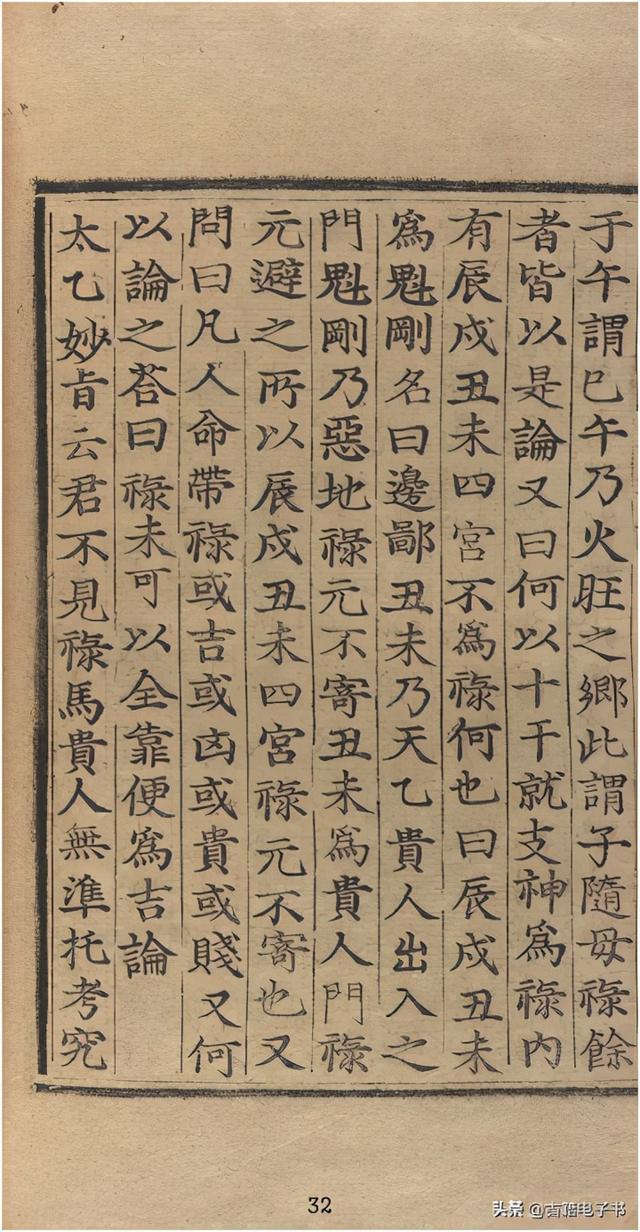 于午謂巳午乃火旺之鄉此謂子隨母祿餘
者皆以是論又曰何以十干就支神爲祿内
有辰戍丑未四宮不爲祿何也曰辰戍丑未
爲魁剛名曰邊鄙丑未乃天乙貴人出入之
門魁剛乃惡地祿元不寄丑未爲貴人門祿
元避之所以辰戍丑未四宮祿元不寄也又
問曰凡人命帶祿或吉或凶或貴或賤又何
以論之荅曰祿未可以全靠便爲吉論
太乙妙旨云君不見祿馬貴人無準托考究
32
头条 @古籍电子书